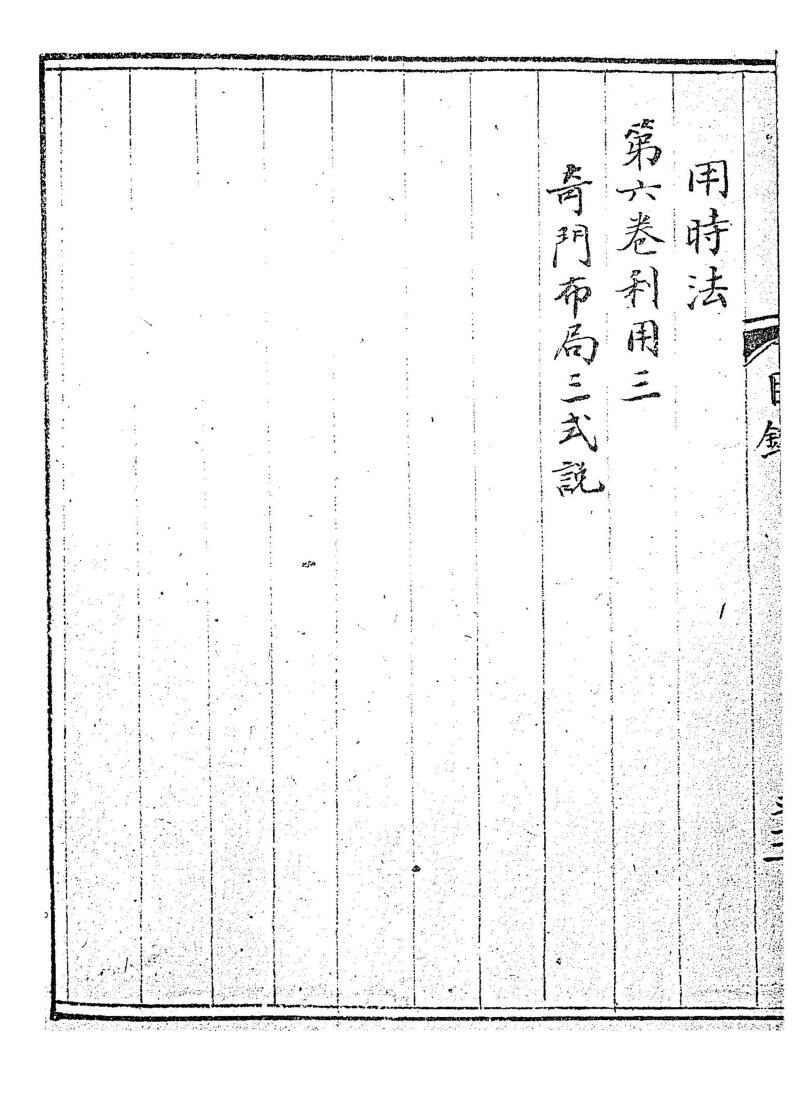 用時法
第六卷利用三
奇門布局三式說
目錄
三